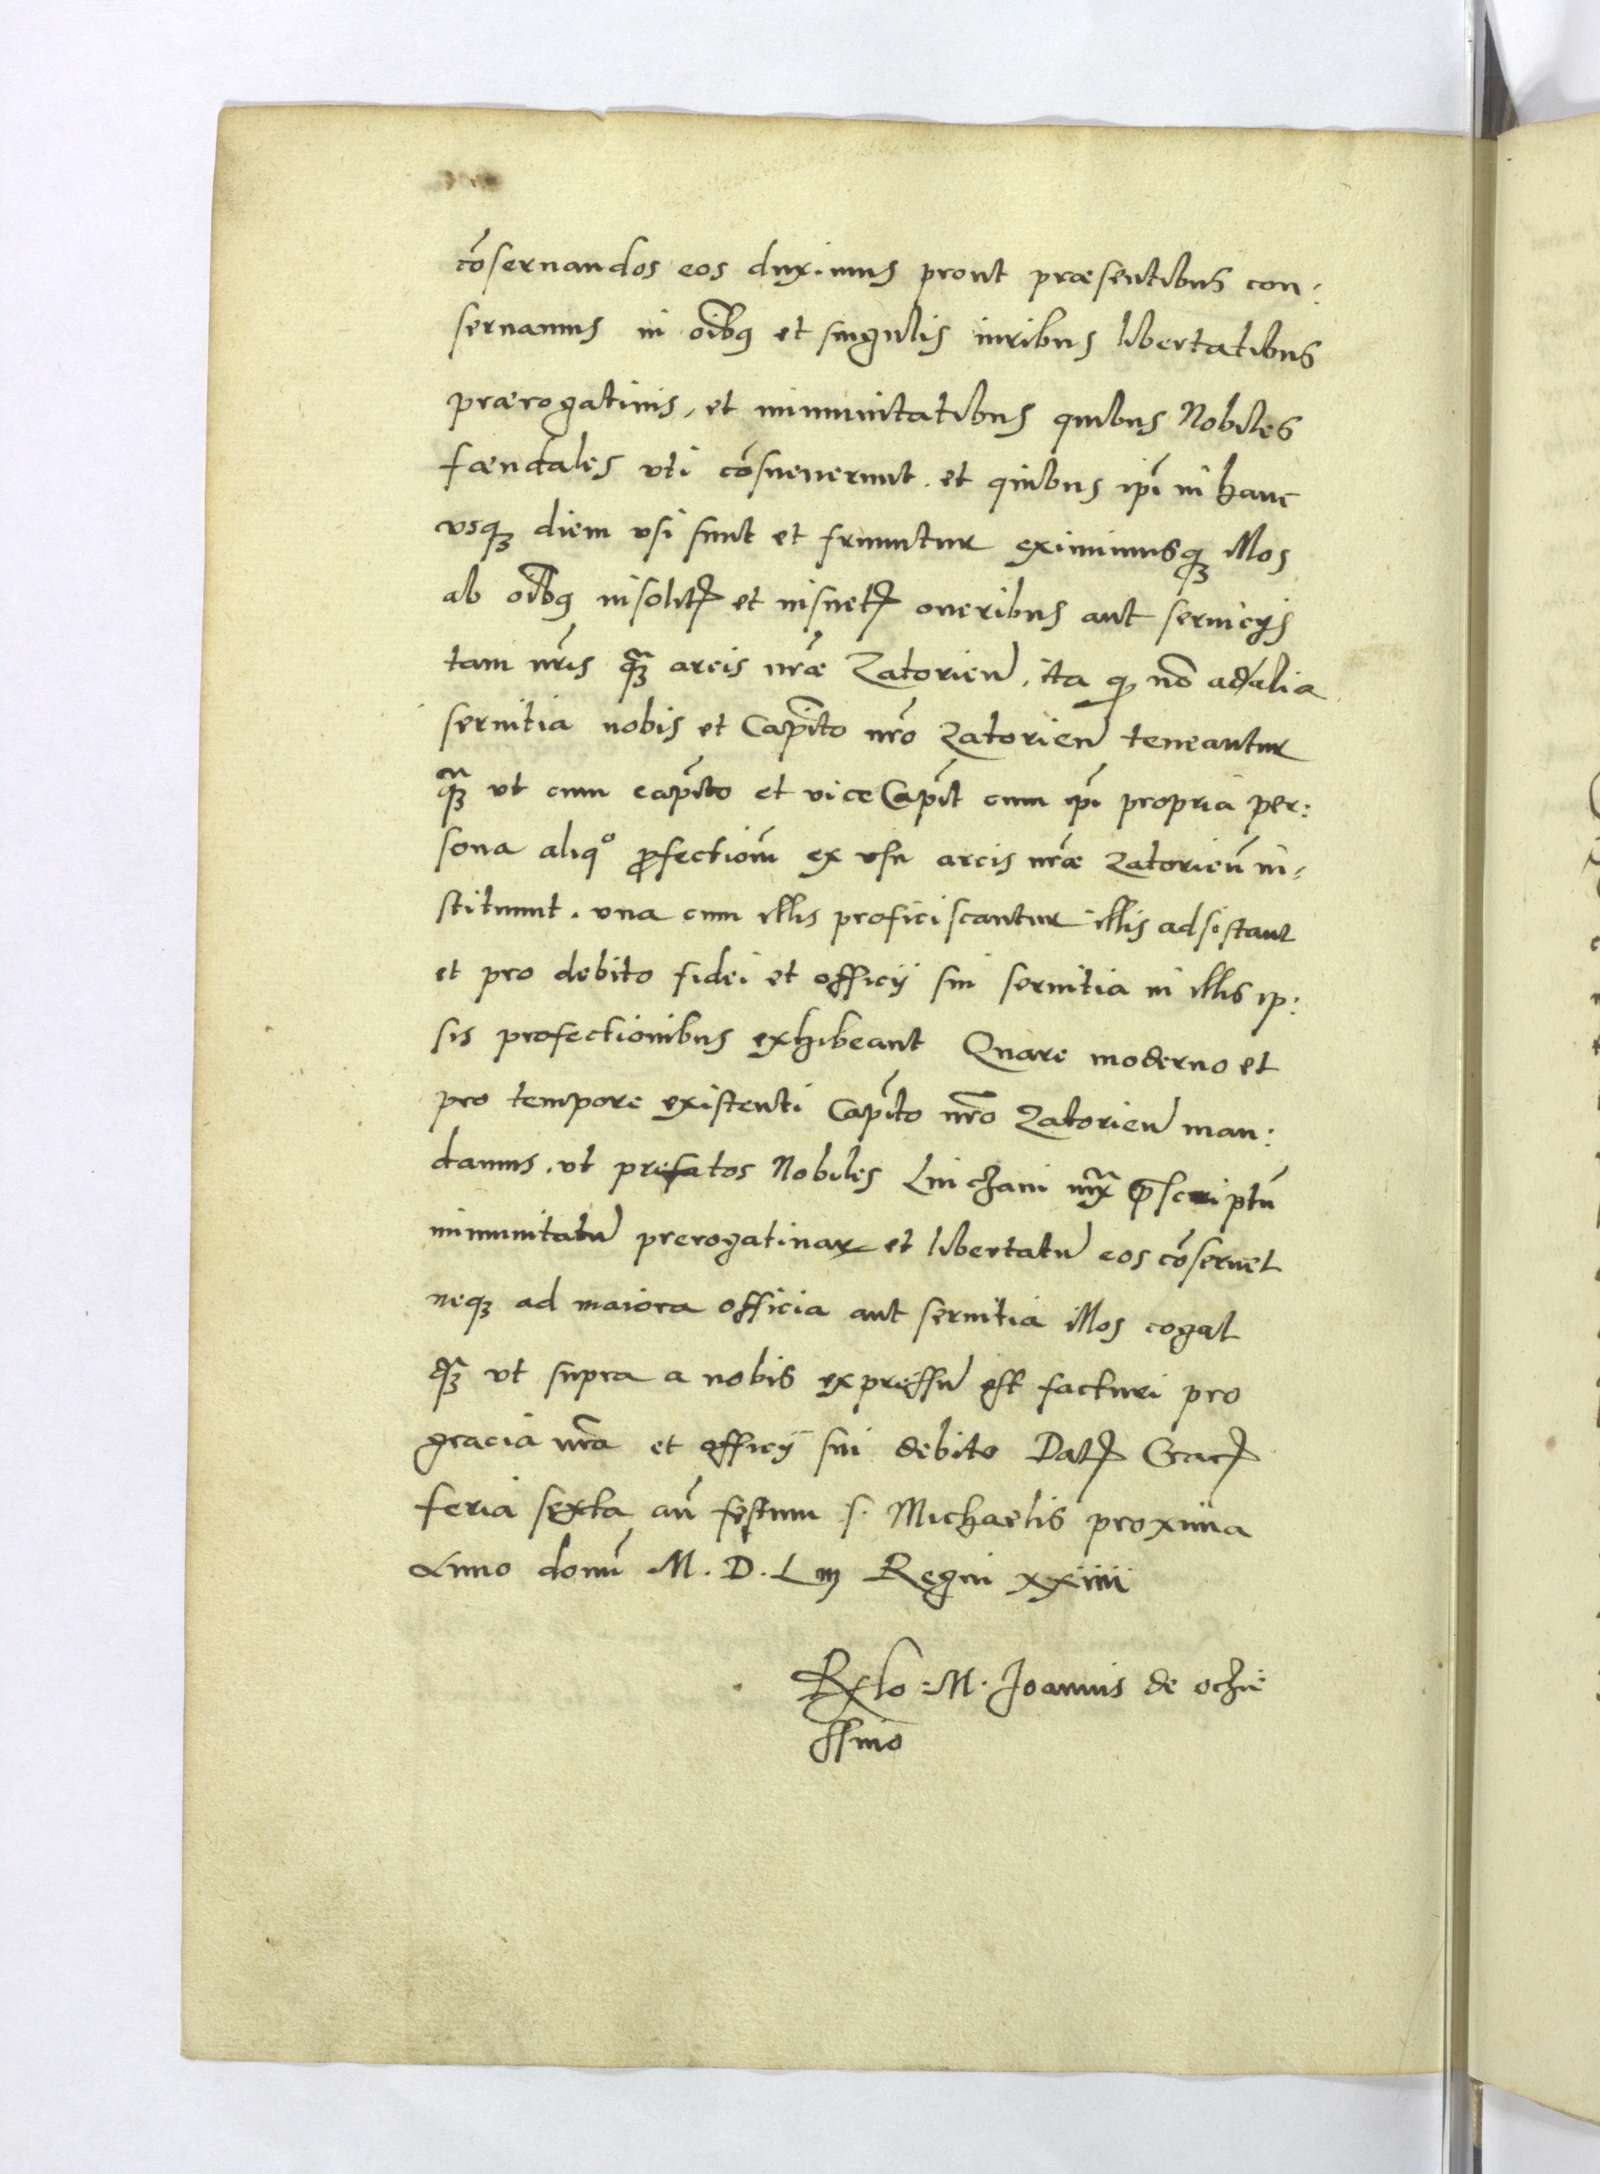 cōseruandos eos duximus prout præsentibus con:
seruamus in oībꝯ et singulis iuribus libertatibus
prærogatiuis, et immunitatibus quibus Nobiles
fæudales vti cōsueuerunt. et quibus ip̄i in hanc
vsqꝫ diem vsi sunt et fruuntur eximimusqꝫ illos
ab oībꝯ insolitꝭ et insuetꝭ oneribus aut seruicijs
tam nr̄is qꝫ̄ arcis nr̄æ Zatorien̄, ita ꝙ nō ad alia
seruitia nobis et Capit̄o nr̄o Zatorien̄ teneantur
qꝫ̄ vt cum capit̄o et vice Capit̄ cum ip̄i propria per:
sona aliqº ꝓfectionē ex vsu arcis nr̄æ Zatorien̄ in-
stituunt. vna cum illis proficiscantur illis adsistant
et pro debito fidei et officij sui seruitia in illis ip:
sis profectionibus exhibeant Quare moderno et
pro tempore existenti Capit̄o nr̄o Zatorien̄ man:
damus. vt prefatos Nobiles Luichani iuxᵃ p̄scriptū
immunitatū prerogatiuaꝝ et libertatū eos cōseruet
neqꝫ ad maiora officia aut seruitia illos cogat
qꝫ̄ vt supra a nobis expressū est facturi pro
gracia nr̄a et officij sui debito Datꝭ Cracꝭ
feria sexta an̄ festum s. Michaelis proxima
Anno domī M.D.Liij Regni xxiiii
Rx̄lo : M. Joannis de ochie
ssino